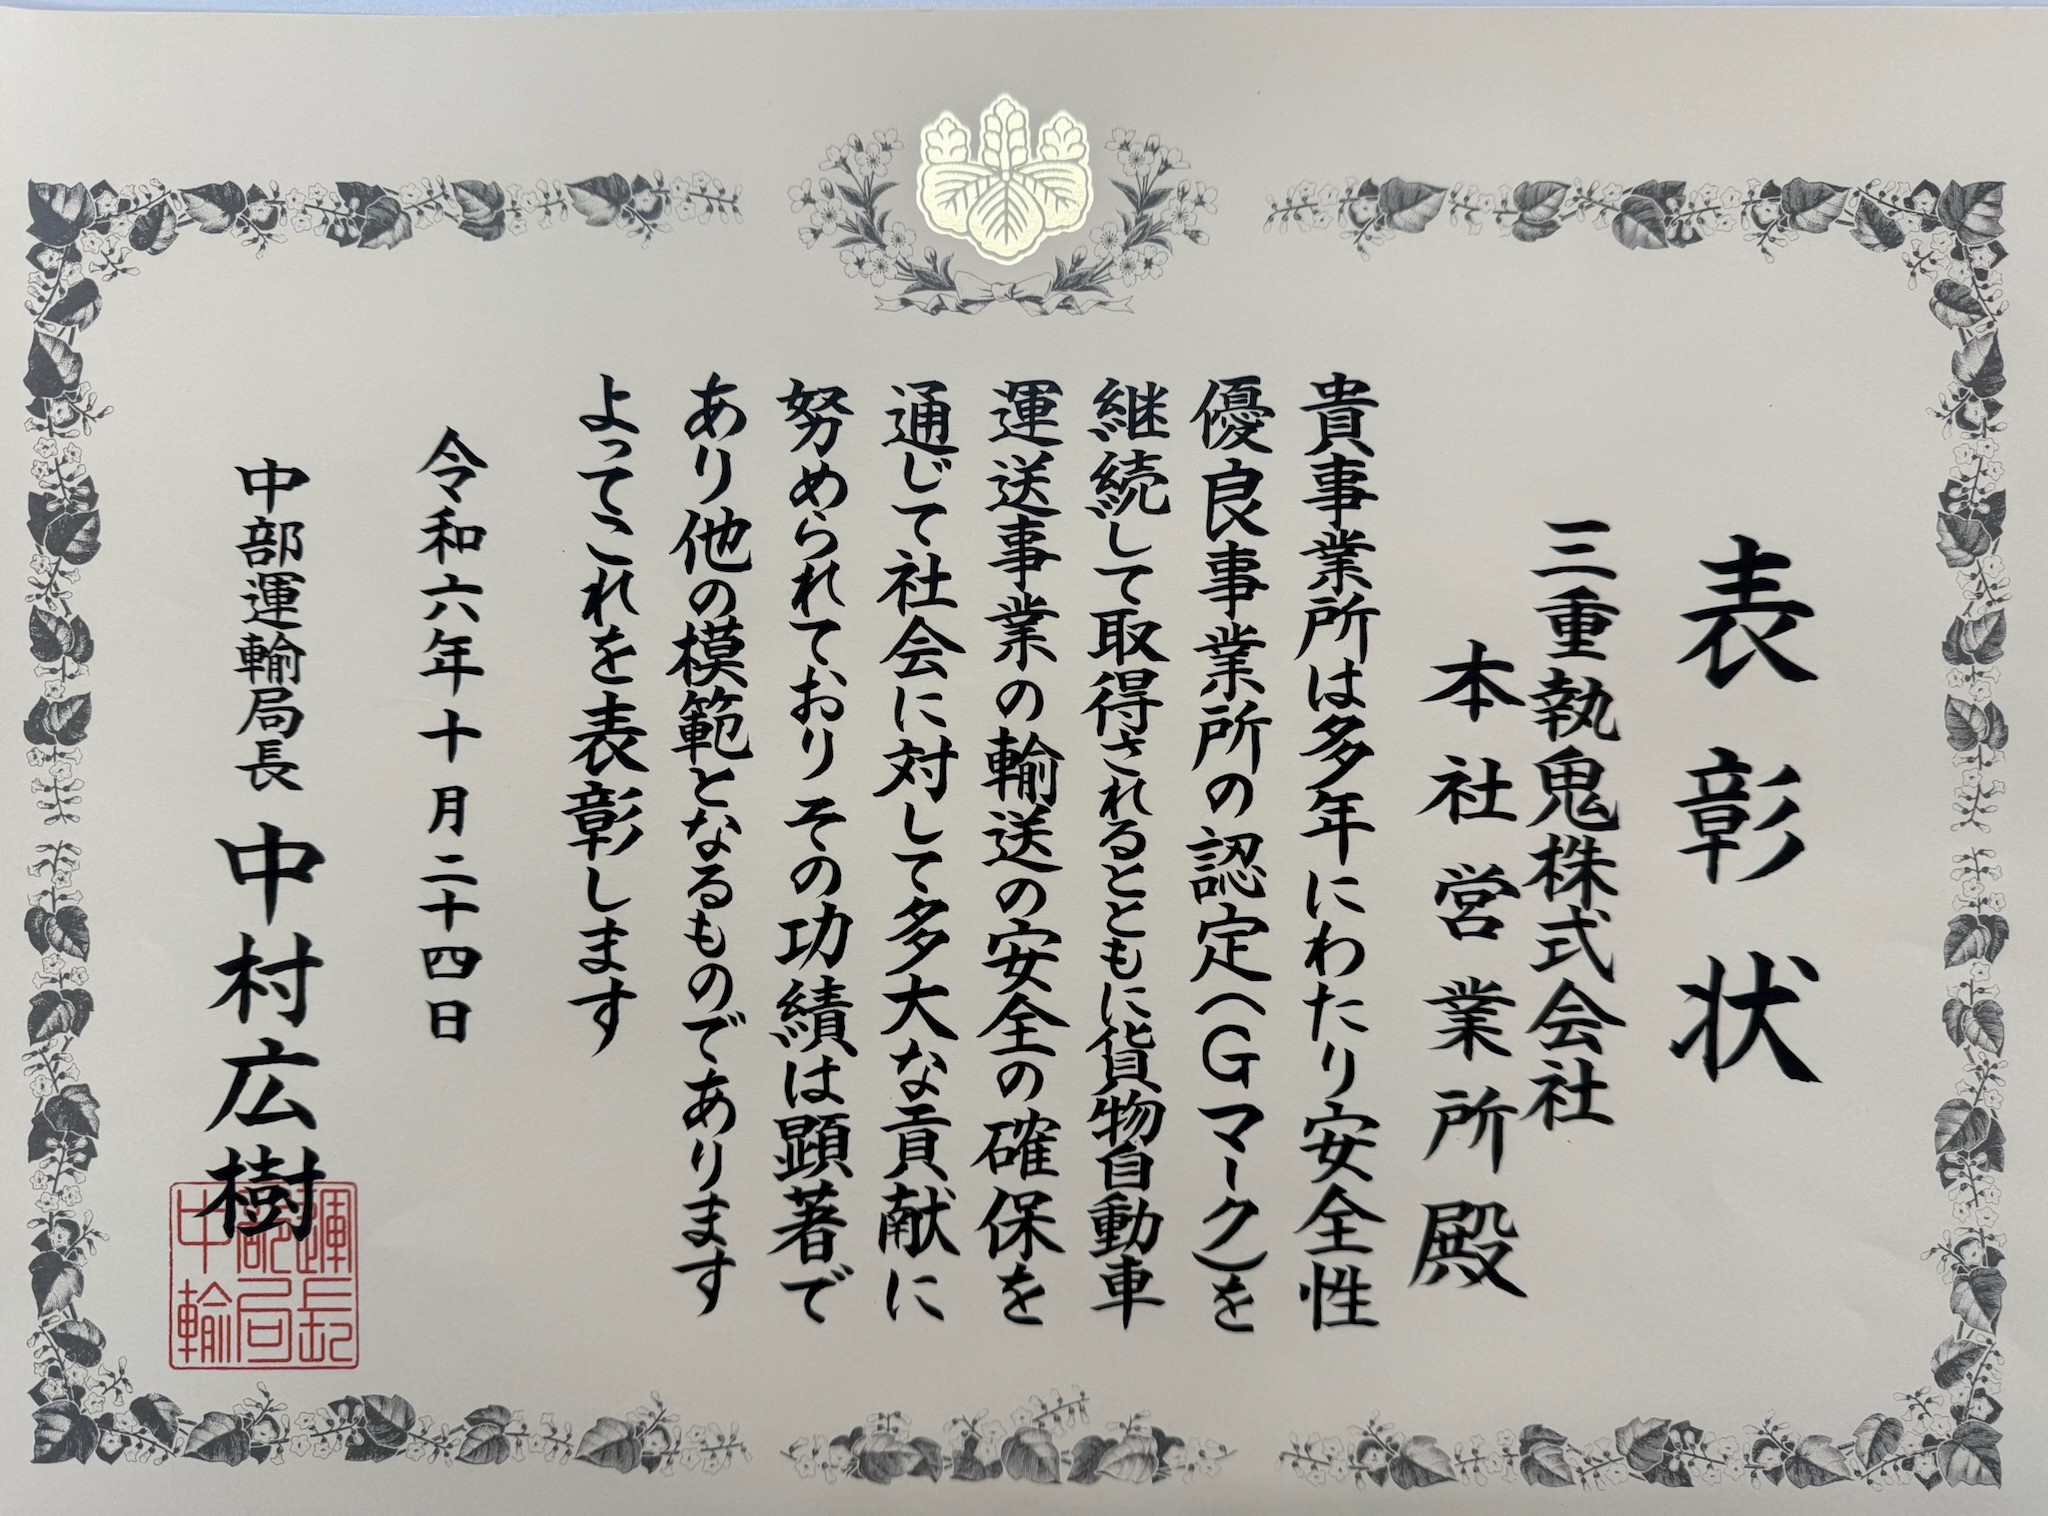 表彰状
三重執鬼株式会社
本社営業所殿
貴事業所は多年にわたり安全性
優良事業所の認定(Gマーク)を
継続して取得されるとともに貨物自動車
運送事業の輸送の安全の確保を
通じて社会に対して多大な貢献に
努められておりその功績は顕著で
あり他の模範となるものであります
よってこれを表彰します
令和六年十月二十四日
中部運輸局長 中村広樹
運長
部局
中輸